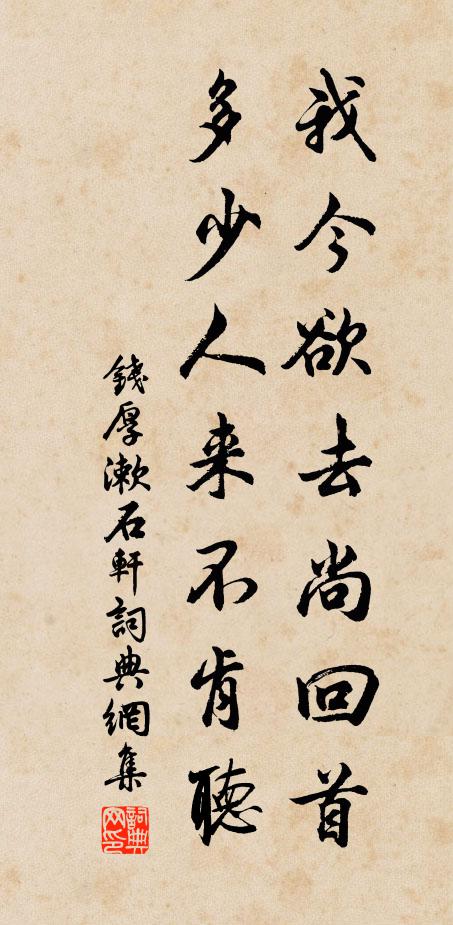 我今欲去尚回首
多少人来不肯聽
錢厚漱石軒詞典網集
詞典網印